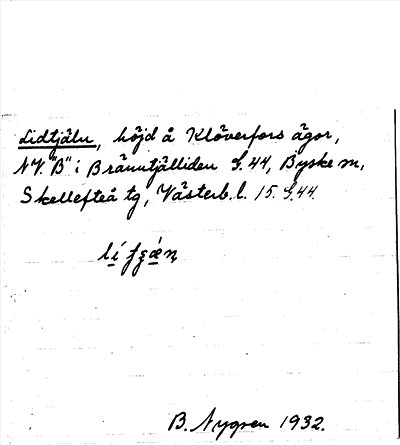 Lidtjäln, höjd å Klöverfors ägor,
NV. "B" i Bränntjälliden S. 44, Byske sn,
Skellefteå tg, Västerb. l. 15. S. 44
B. Nygren 1932.